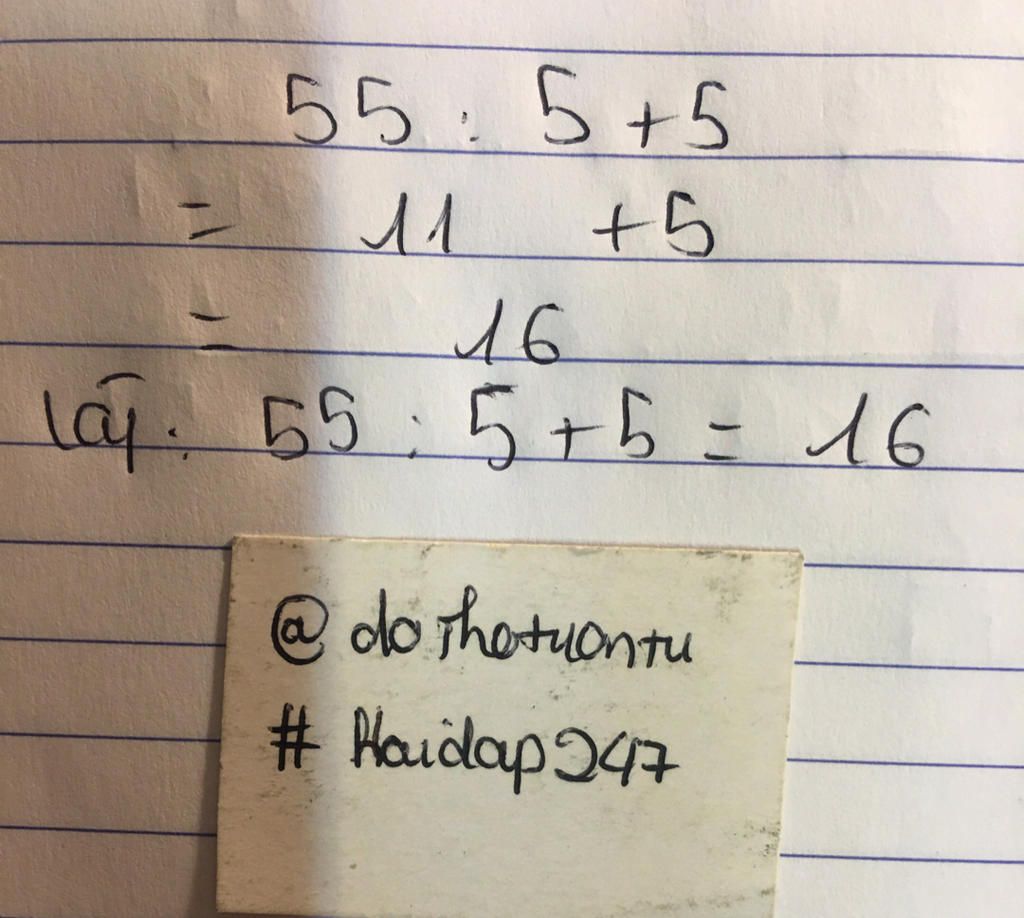 55 : 5 + 5
= 11 + 5
= 16
: 55 : 5 + 5 = 16
@
# Hoidap247